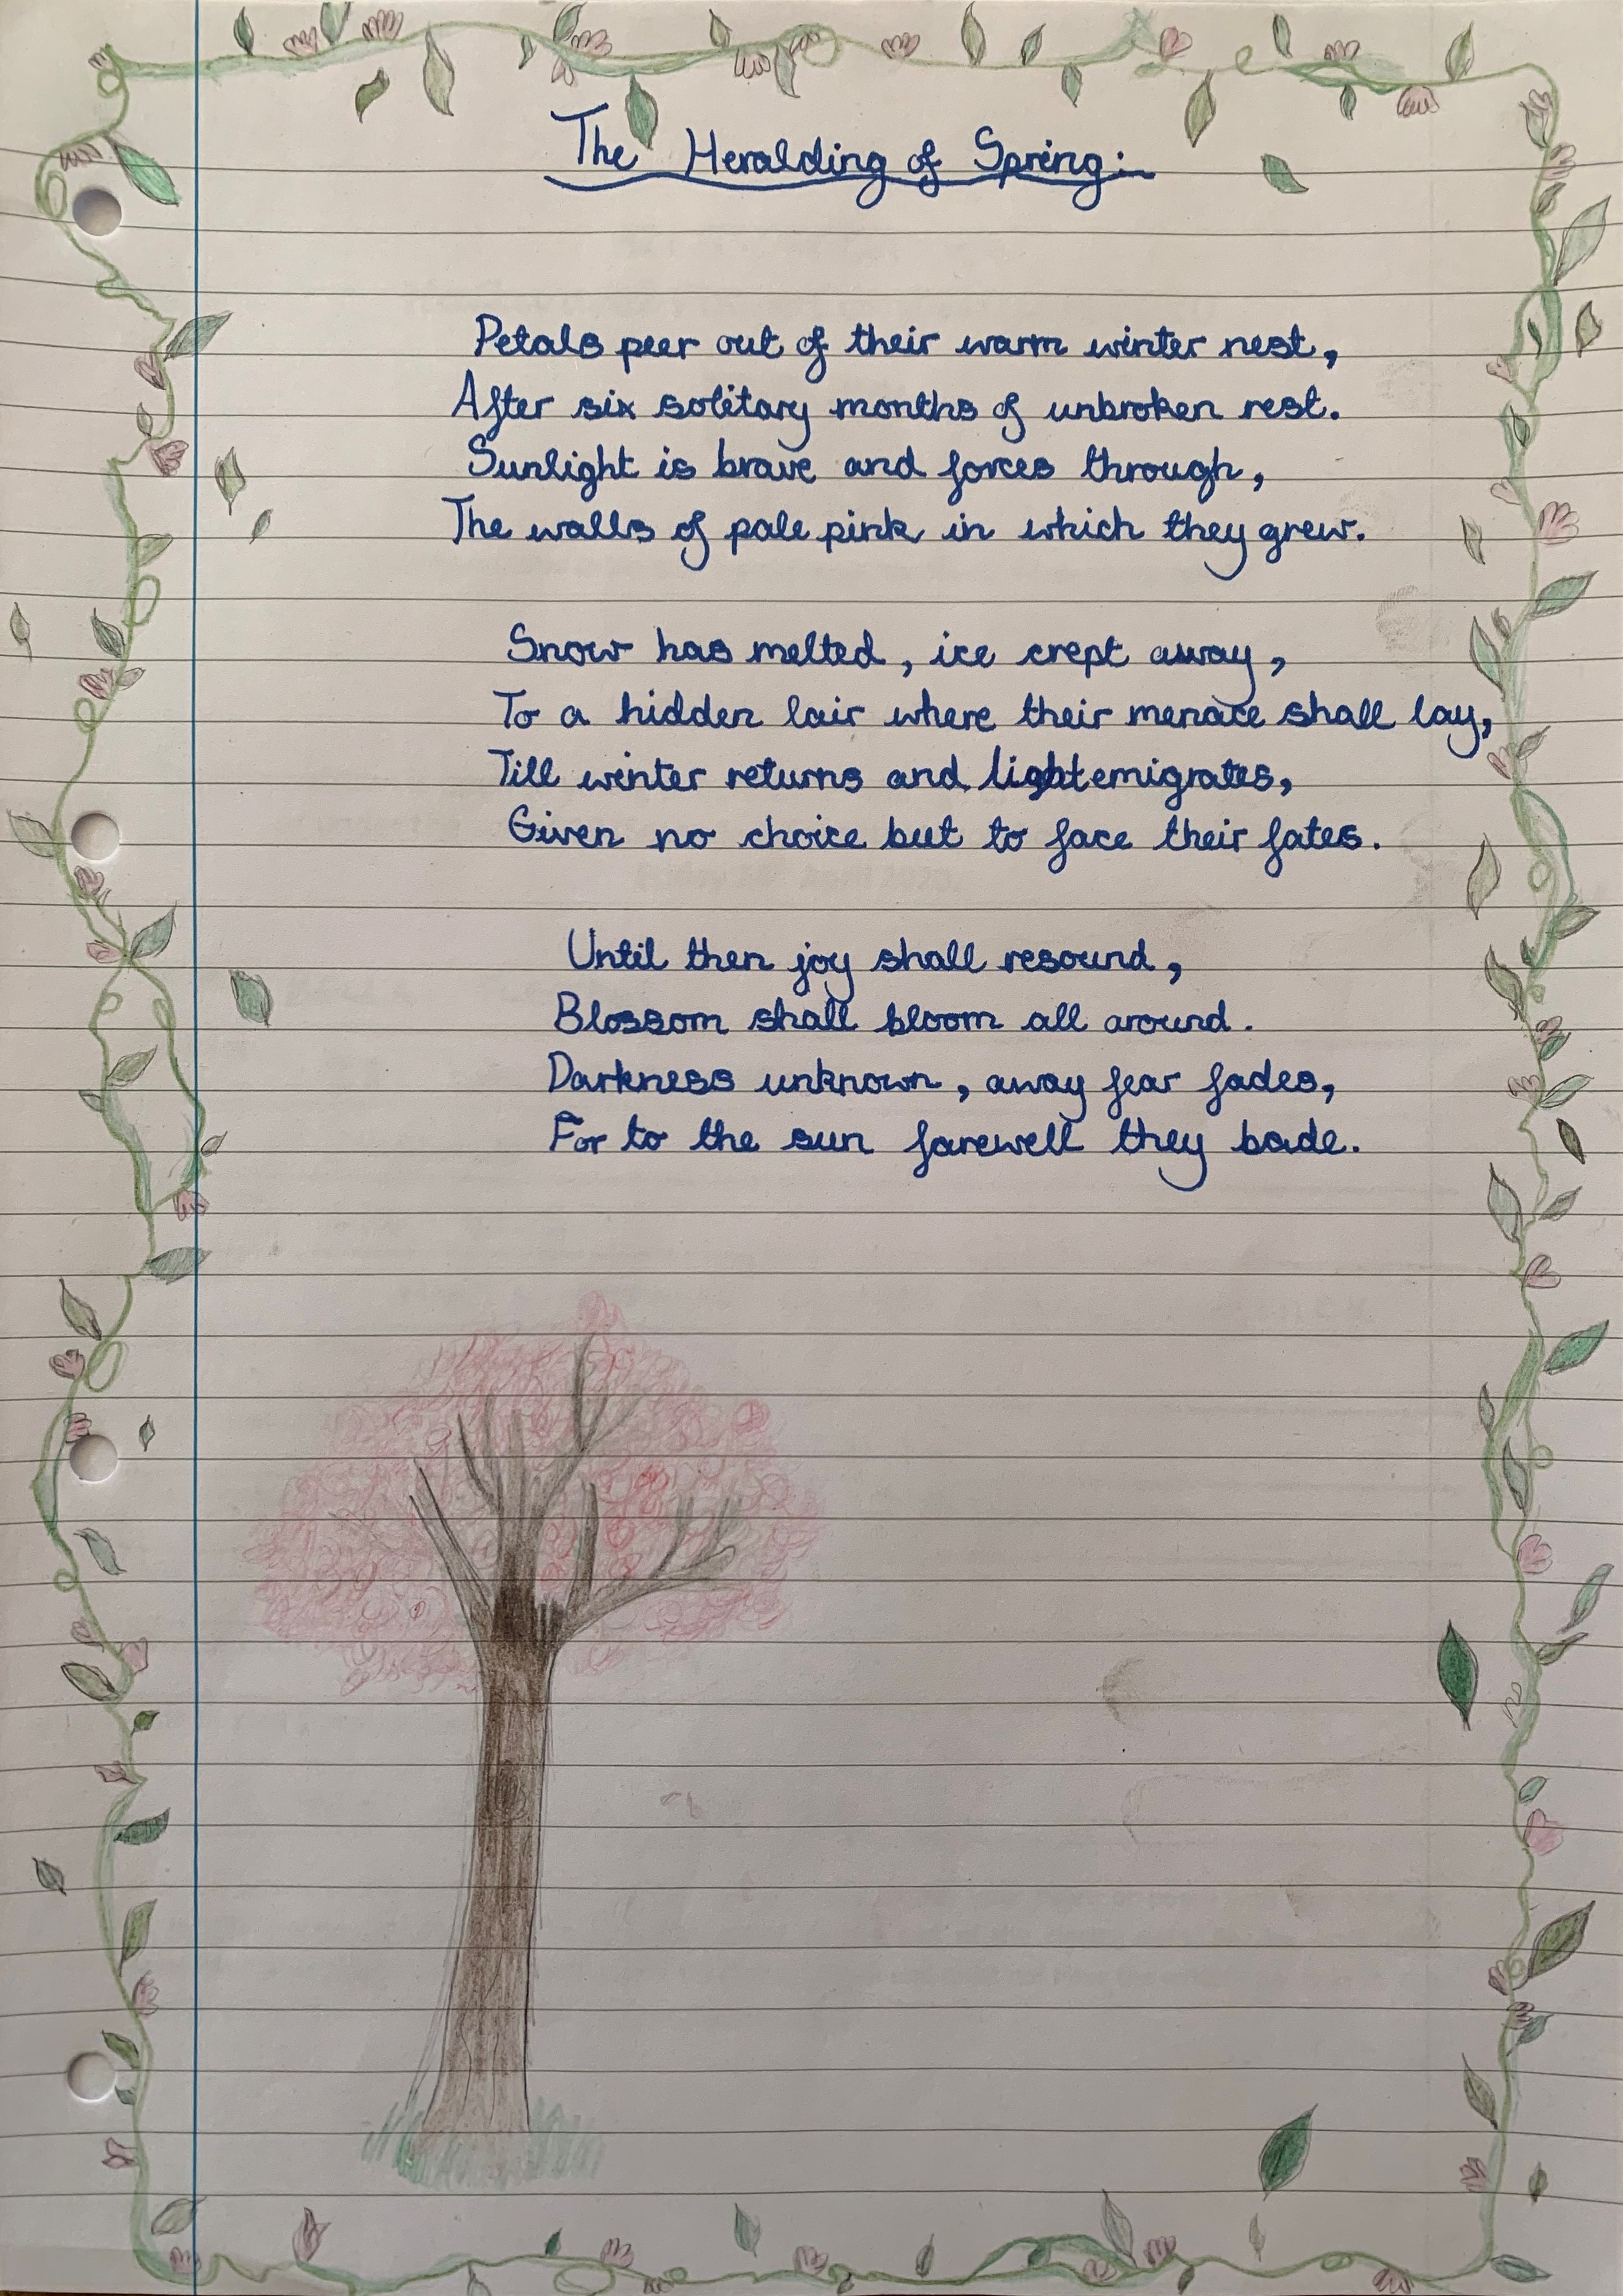 The Heralding of Spring:
Petals peer out of their warm winter nest,
After six solitary months of unbroken rest.
Sunlight is brave and forces through,
The walls of pale pink in which they grew.
Snow has melted, ice crept away,
To a hidden lair where their menace shall lay,
Till winter returns and light emigrates,
Given no choice but to face their fates.
Until then joy shall resound,
Blossom shall bloom all around.
Darkness unknown, away fear fades,
For to the sun farewell they bade.